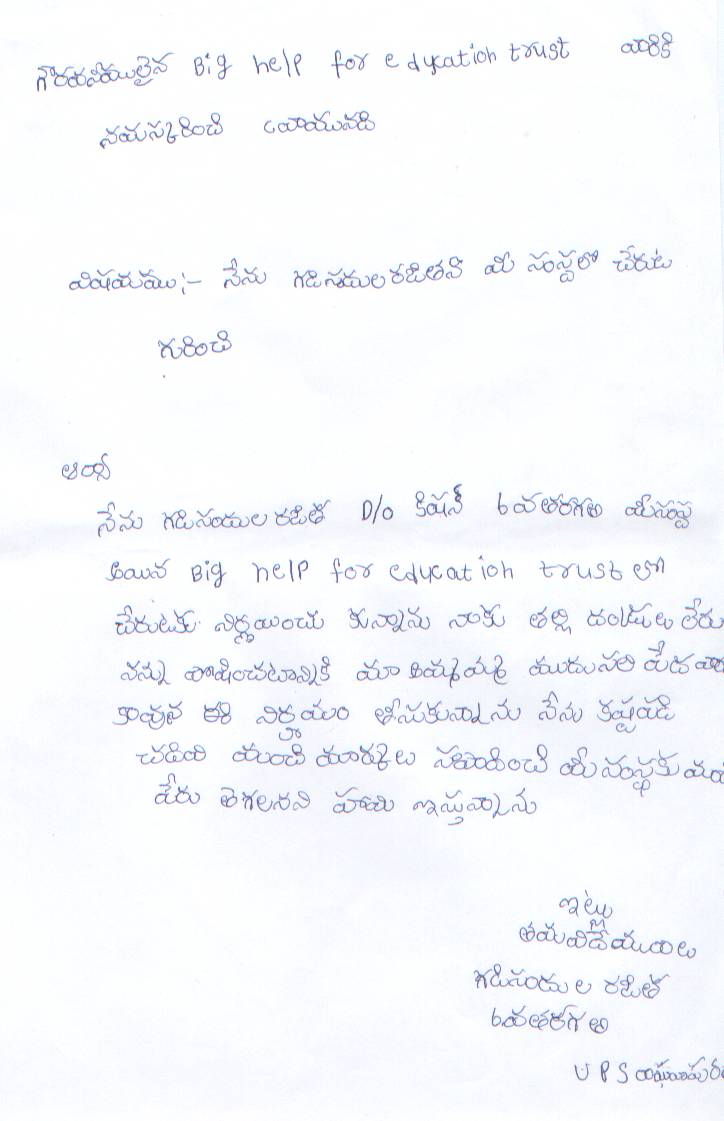 గౌరవనీయులైన Big help for education trust వారికి
నమస్కరించి వ్రాయునది
విషయము:- నేను గడిసందుల రజితని మీ సంస్థలో చేరుట
గురించి
ఆంటీ
నేను గడిసందుల రజిత D/o కిషన్ 6వతరగతి మీసంస్థ
అయిన Big help for education trust లో
చేరుటకు నిర్ణయించు కున్నాను నాకు తల్లి దండ్రులు లేరు
నన్ను పోషించటాన్నికి మా అమ్మమ్మ ముదుసలి పేద
కావున ఈ నిర్ణయం తీసుకున్నాను నేను కష్టపడి
చదివి మంచి మార్కులు సంపాదించి మీ సంస్థకు
పేరు తెగలనని హామి ఇస్తున్నాను
ఇట్లు
తమవిదేయురాలు
గడిసందుల రజిత
6వతరగతి
U P S